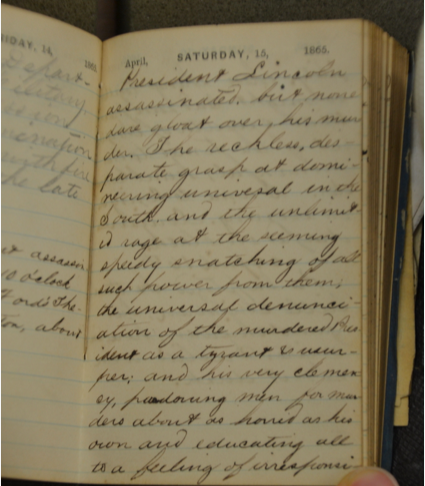 FRIDAY, 14,
186
Depart-
with fire
the late
assassin
10 o'clock
Ford's The-
about
April, SATURDAY, 15, 1865.
President Lincoln
assassinated, but none
dare gloat over, his mur
der. The reckless, des-
parate grasp at domi-
neering universal in the
South, and the unlimit
d rage at the seeming
speedy snatching of all
such power from them,
the universal denunci-
ation of the murdered Pres
ident as a tyrant & usur-
per; and his very clemen-
cy, pardoning men for mur
ders about as horrid as his
own and educating all
to a feeling of irresponsi-